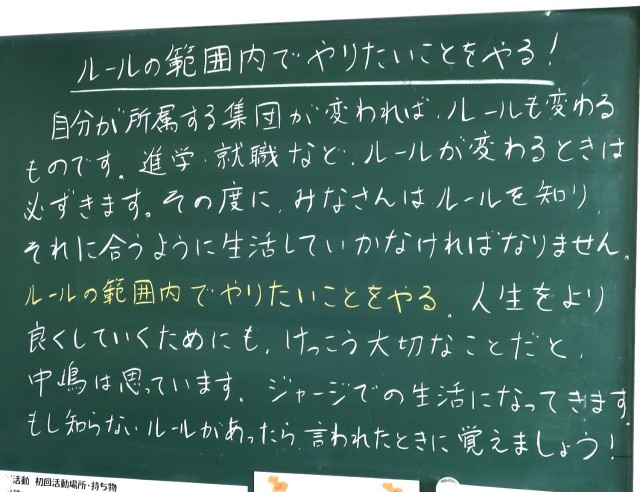 ルールの範囲内でやりたいことをやる！
自分が所属する集団が変われば、ルールも変わる
ものです。進学、就職など、ルールが変わるときは
必ずきます。その度に、みなさんはルールを知り、
それに合うように生活していかなければなりません。
ルールの範囲内でやりたいことをやる。人生をより
良くしていくためにも、けっこう大切なことだと、
中嶋は思っています。ジャージでの生活になってきます。
もし知らないルールがあったら、言われたときに覚えましょう！
活動 初回活動場所・持ち物